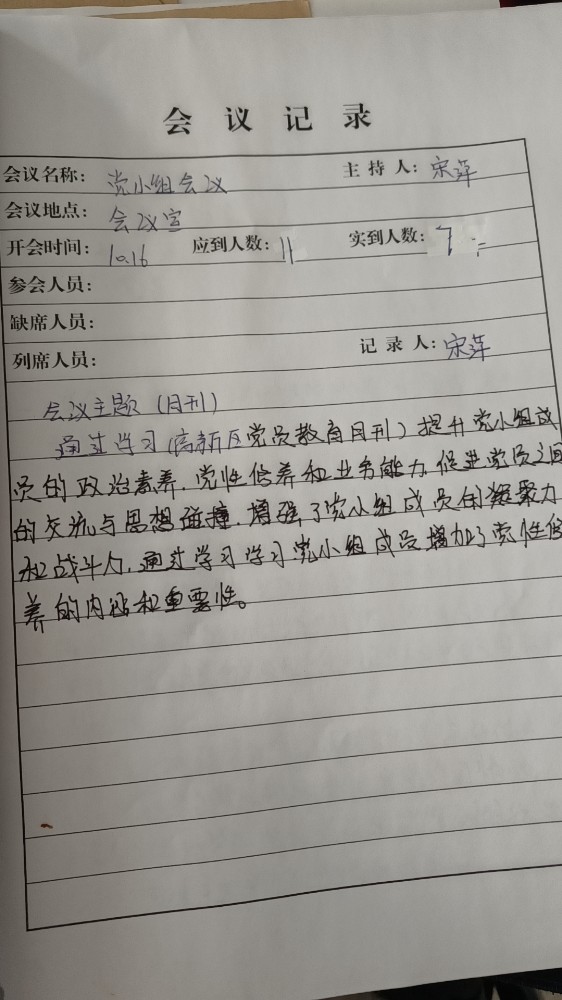 会议记录
会议名称：党小组会议 主持人：宋萍
会议地点：会议室
开会时间：10.16 应到人数：11 实到人数：7
参会人员：
缺席人员：
列席人员： 记录人：宋萍
会议主题（月刊）
通过学习（高新区党员教育月刊）提升党小组成
员的政治素养、党性修养和业务能力，促进党员之间
的交流与思想碰撞，增强了党小组成员的凝聚力
和战斗力，通过学习学习党小组成员增加了党性修
养的内涵和重要性。